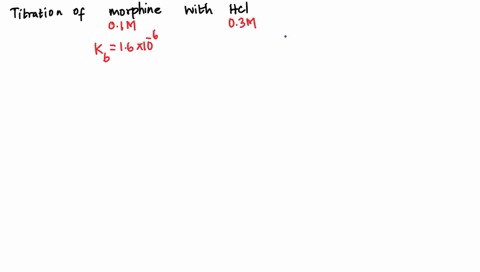 Titration of morphine with Hcl
0.1M 0.3M
K_b = 1.6 x 10^-6